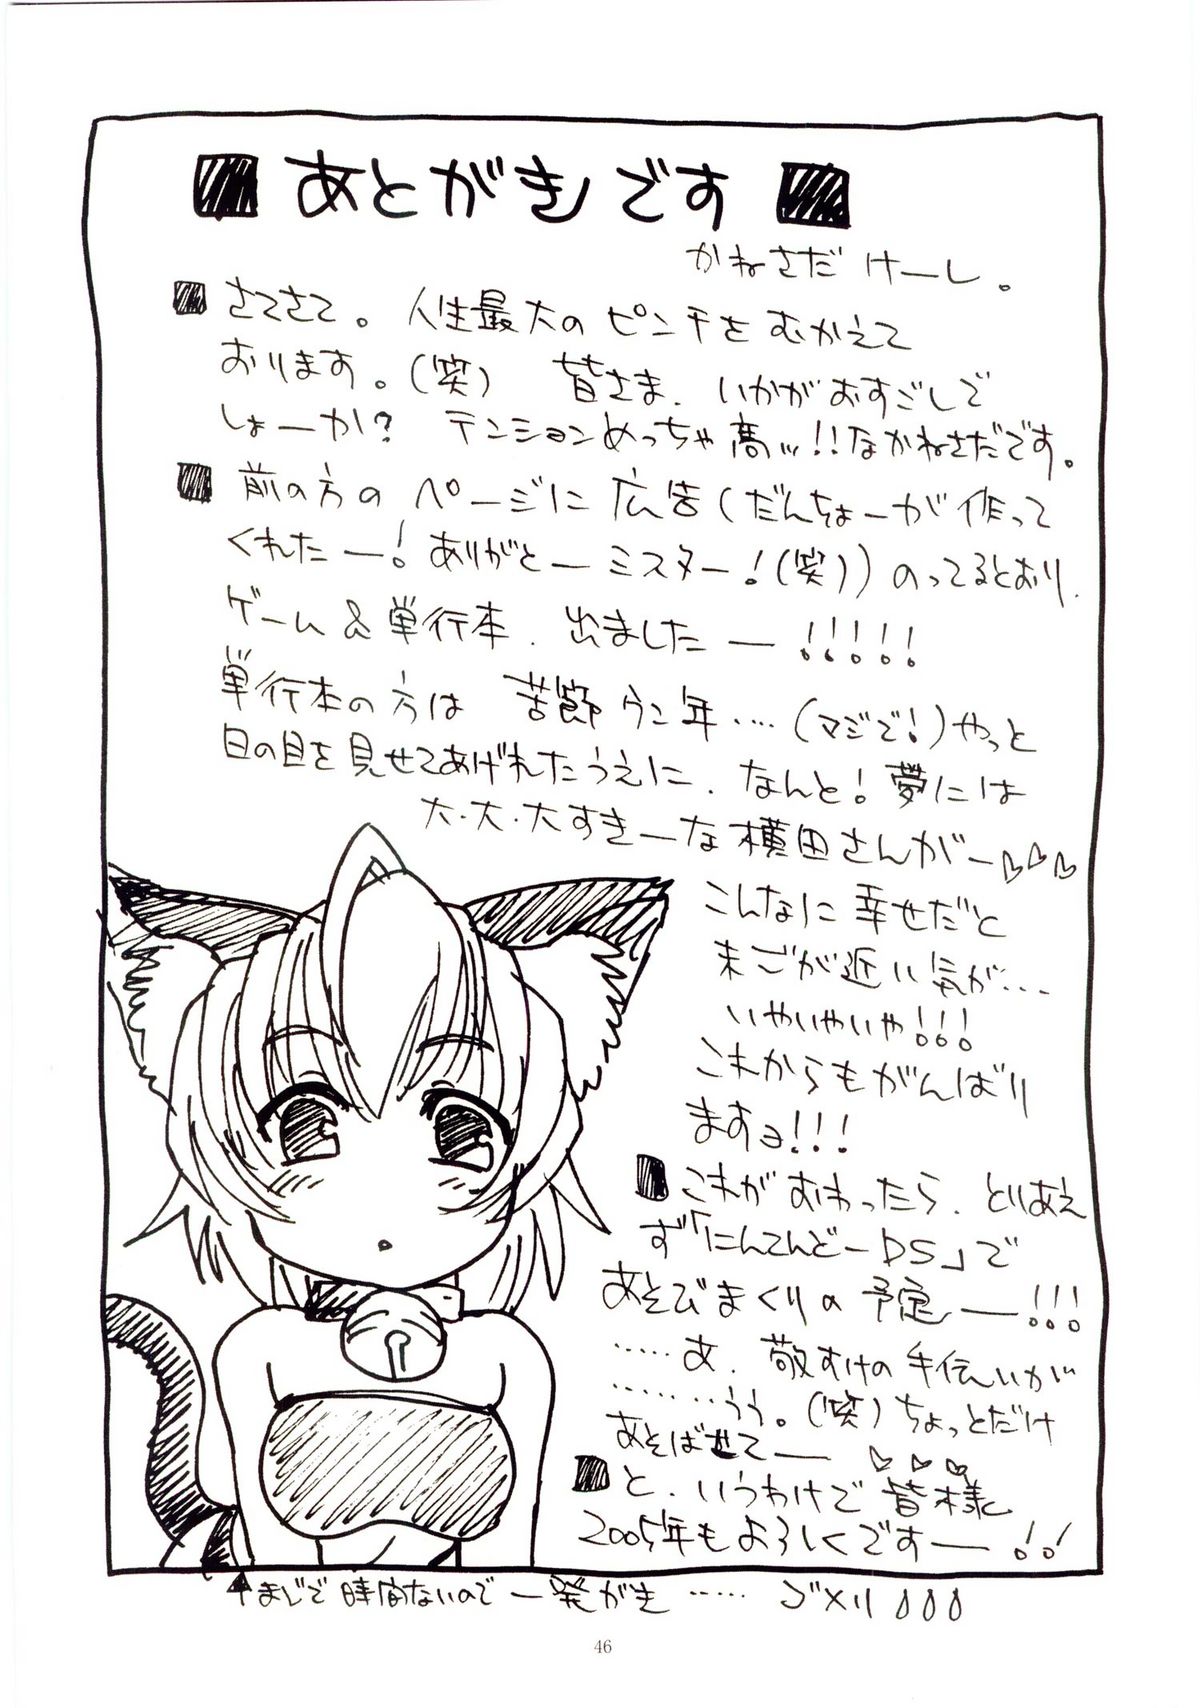 ■ あとがきです ■
かねさだ けーし。
■ さてさて。人生最大のピンチをむかえて
おります。(笑) 皆さま、いかがおすごしで
しょーか? テンションめっちゃ高ッ!!なかねさだです。
■ 前の方のページに広告(だんちょーが作って
くれたー!ありがとーミスター!(笑))のってるとおり、
ゲーム&単行本、出ましたー!!!!!
単行本の方は 苦節ウン年‥‥(マジで!)やっと
日の目を見せてあげれたうえに、なんと!夢には
大・大・大すきーな横田さんがー♡♡♡
こんなに幸せだと
末ごが近い気が‥‥
いやいやいや!!!
これからもがんばり
ますョ!!!
■ これがおわったら、とりあえ
ず「にんてんどーDS」で
あそびまくりの予定ー!!!
‥‥‥あ、敬すけの手伝いが
‥‥‥‥うう。(笑)ちょっとだけ
あそばせてー ♡♡♡
■ と、いうわけで皆様
2005年もよろしくですー!!
↑まじで時間ないので一発がき‥‥‥ゴメリ
46